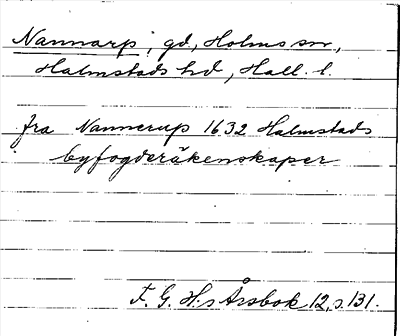 Nannarp, gd, Holms sn,
Halmstads hd, Hall. l.
fra Nannerup 1632 Halmstads
byfogderäkenskaper
F. G. H:s Årsbok 12, s. 131.